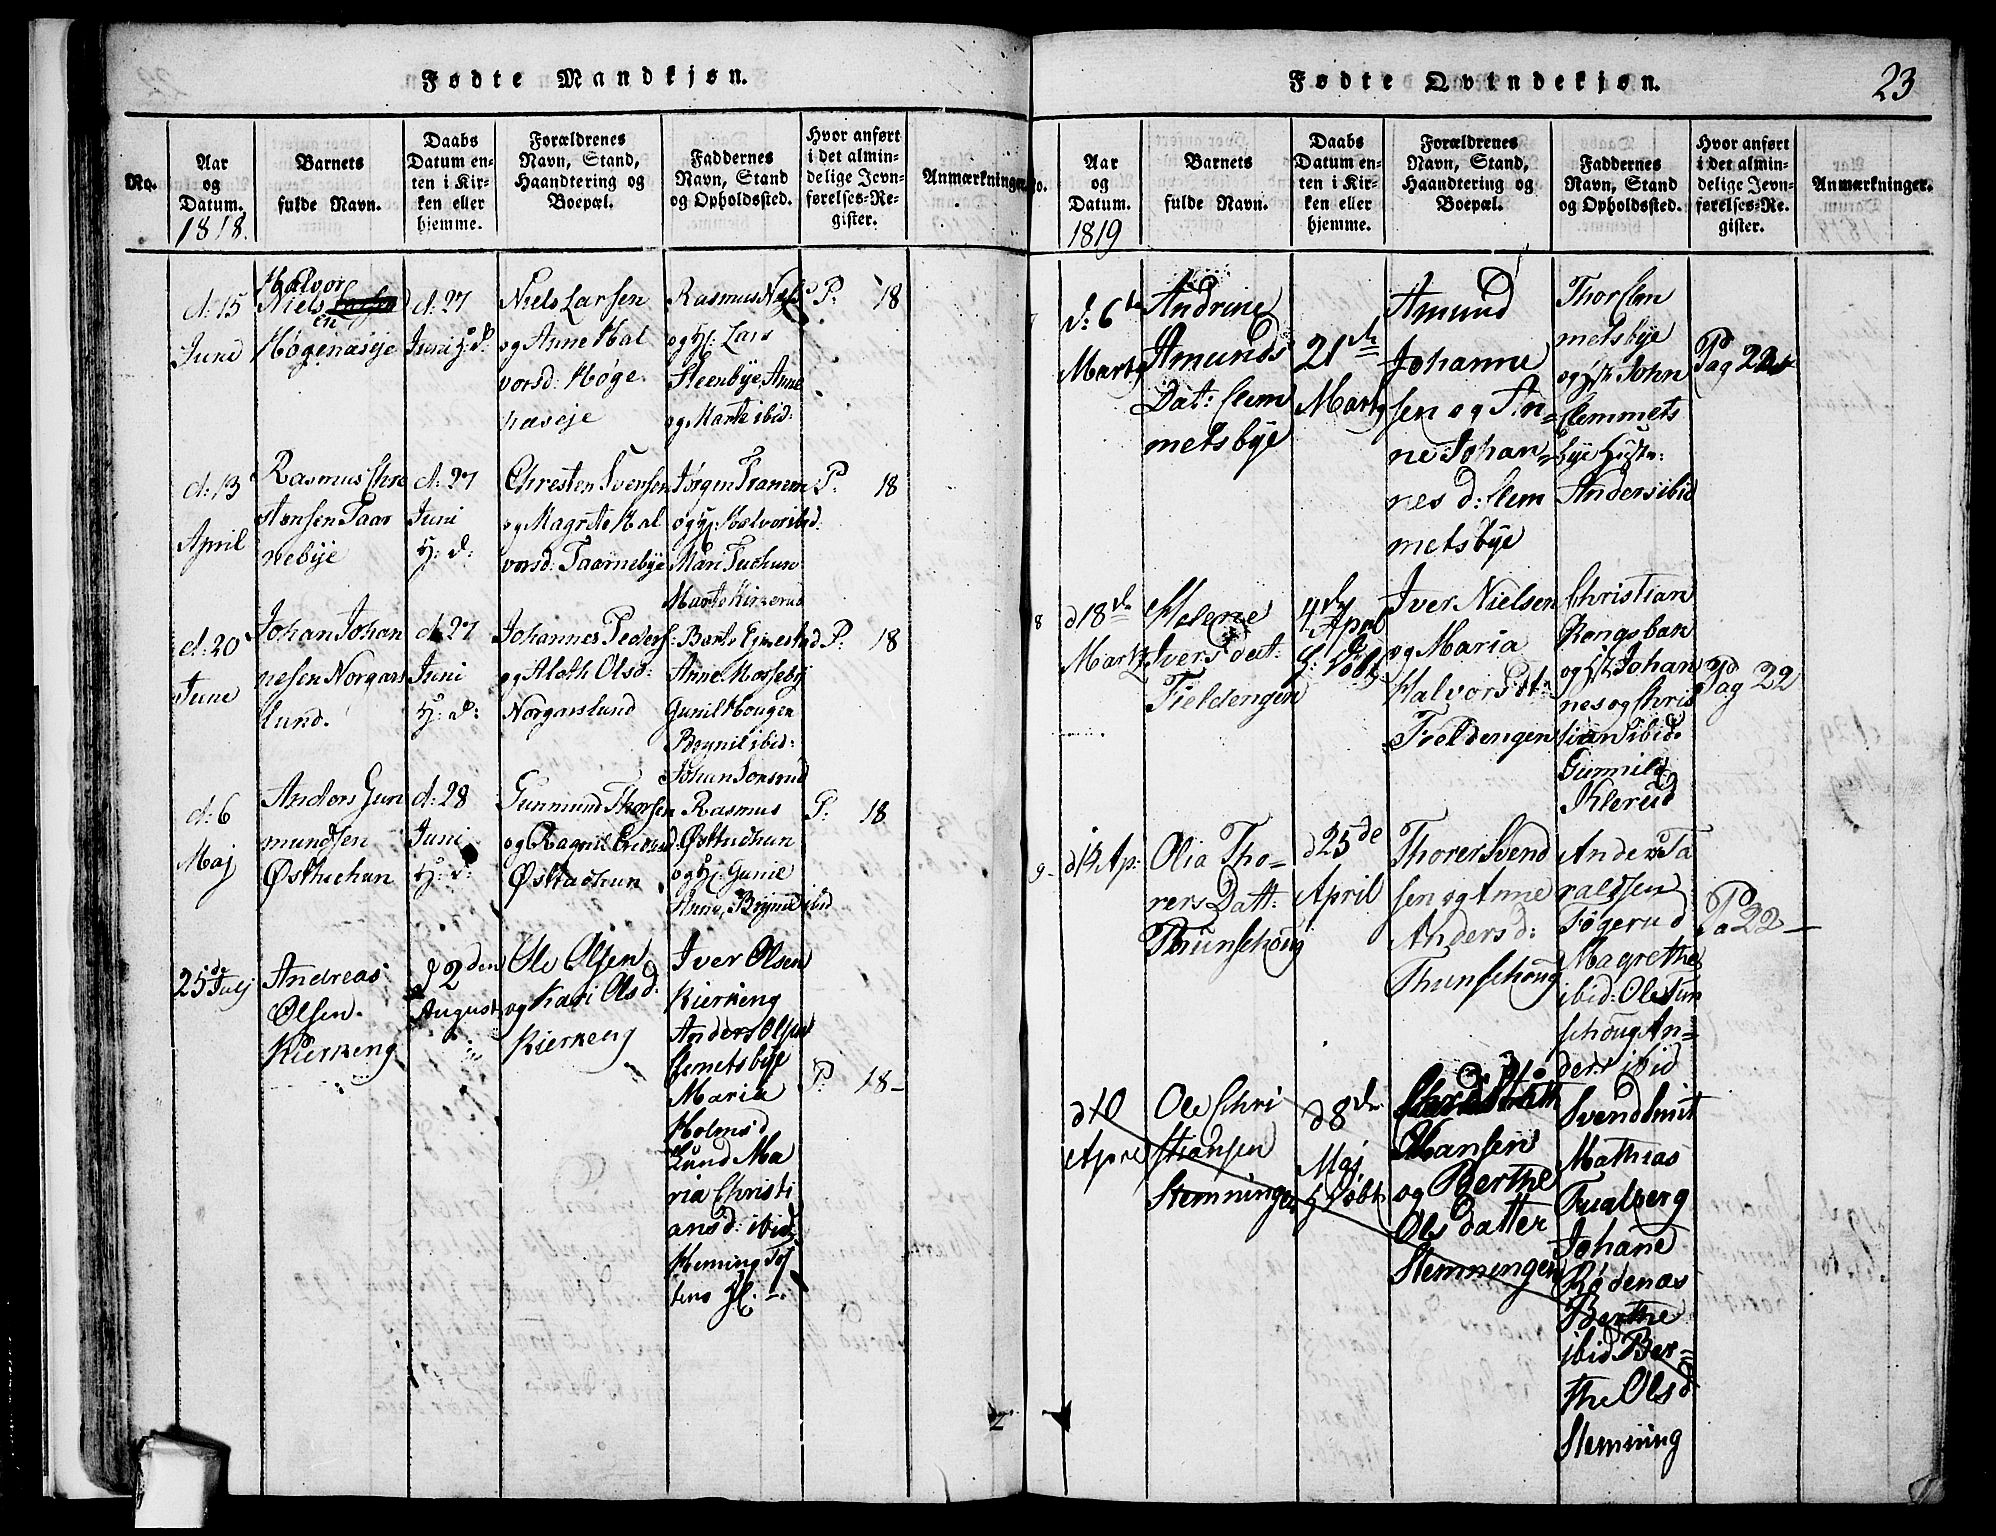 Fødte Mandkjøn.
No.
Aar
og
Datum.
1818.
Barnets
fulde Navn.
Daabs
Datum en-
ten i Kir-
ken eller
hjemme.
Forældrenes
Navn, Stand,
Haandtering og
Boepæl.
Faddernes
Navn, Stand
og Opholdssted.
Hvor anført
i det almin-
delige Jevn-
førelses-Re-
gister.
Anmærkninger
d: 15
June
Halvor
Niels
Høgenæseje
d: 27
Juni H: d:
Niels Larsen
og Anne Hal
vorsd: Høge
næseje
Rasmus
og H: Lars
Steenbye Anne
og Marte ibid:
P. 18
d: 13
April
Rasmus Chre
stensen Taar
nebye
d: 27
Juni
H: d:
Chresten Svensen
og Magrete Hal
vorsd: Taarnebye
Jørgen Tranem
og H: Halvor ibid:
Mari Tuchun
Marte
P. 18
d: 20
June
Johan Johan
nesen Norgars
lund.
d: 27
Juni
H: d:
Johannes Peders:
og Aleth Olsd:
Norgarslund
Anne Mosseby
Gunil Hougen
ibid:
P. 18
d: 6
Maj
Anders Gun
mundsen
Østtuchun
d: 28
Juni
H: d:
Gunmund Thorsen
og Ragnil
Østtuchun
Rasmus
Østtuchun
og H: Gunil
Anne, ibid
P. 18
25de July
Andreas
Olsen
Kierkeng
d 2den
August
Ole Olsen
og Kari Olsd:
Kierkeng
Iver Olsen
Kierkeng
Anders Olsen
Clemetsbye
Maria
Holms d
Lund Ma
ria Christi
ansd: ibid
Hemming
P. 18-
2
Fødte Qvindekjøn.
23
No.
Aar
og
Datum.
1819
Barnets
fulde Navn.
Daabs
Datum en-
ten i Kir-
ken eller
hjemme.
Forældrenes
Navn, Stand,
Haandtering og
Boepæl.
Faddernes
Navn, Stand
og Opholdssted.
Hvor anført
i det almin-
delige Jevn-
førelses-Re-
gister.
Anmærkninger.
7
d: 6te
Marty
Andrine
Amunds
Dat: Clem
metsbye
21de
Marty
Amund
Johanne
sen og An=
ne Johan=
nes d: Clem
metsbye
Thor Clem
metsbye
og John
Clemmets
bye Hustr:
Anders ibid
Pag 22
8
d 18de
Marty
Helene
Ivers dat:
Fieldengen
4de
April
Iver Nielsen
og Maria
Halvors dt:
Fieldengen
Christian
Kongsbak
og Johan
nes og Chris
tian ibid.
Gunnild
Klerud
Pag 22
9-
d 12 Ap:
Olia Tho-
rers Datt:
Thunschoug
d 25de
April
Thorer Svend
sen og Anne
Anders d:
Thunschoug
Anders Ta
raldsen
Søgerud
Magrethe
ibid: Ole Tun
schoug An=
ders ibid
Pa 22-
d 10
Apre
Ole Chri
stiansen
Stemningen
d 8de
Maj
Hansen
og Berthe
Olsdatter
Stemningen
Svend
Mathias
Fuglberg
Johane
Rødenas
Berthe
ibid Ber=
the Olsd
Stemning